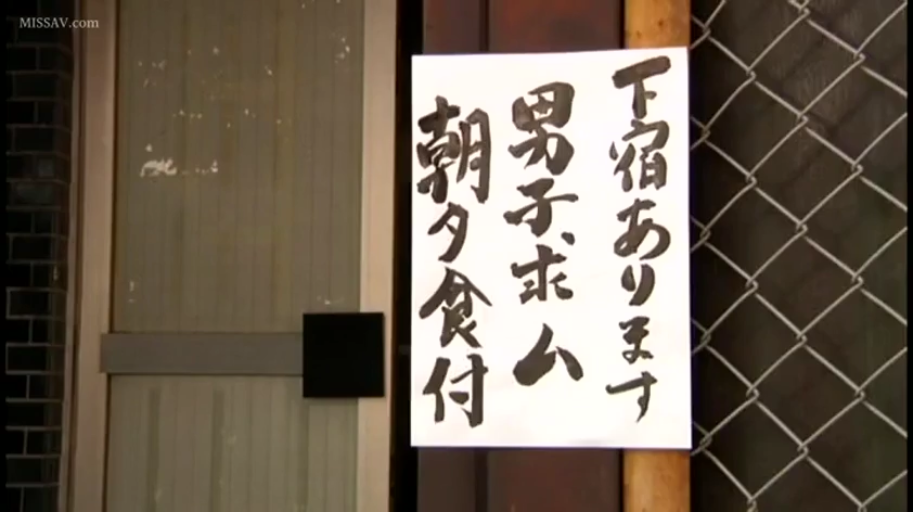 MISSAV.com
下宿あります
男子求ム
朝夕食付